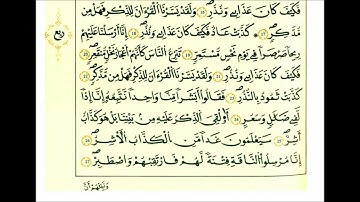 فَكَيْفَ كَانَ عَذَابِى وَنُذُرِ ١٦ وَلَقَدْ يَسَّرْنَا الْقُرْآنَ لِلذِّكْرِ فَهَلْ مِنْ
ربع
مُدَّكِرٍ ١٧ كَذَّبَتْ عَادٌ فَكَيْفَ كَانَ عَذَابِى وَنُذُرِ ١٨ إِنَّا أَرْسَلْنَا عَلَيْهِمْ
رِيحًا صَرْصَرًا فِى يَوْمِ نَحْسٍ مُسْتَمِرٍّ ١٩ تَنْزِعُ النَّاسَ كَأَنَّهُمْ أَعْجَازُ نَخْلٍ مُنْقَعِرٍ ٢٠
فَكَيْفَ كَانَ عَذَابِى وَنُذُرِ ٢١ وَلَقَدْ يَسَّرْنَا الْقُرْآنَ لِلذِّكْرِ فَهَلْ مِنْ مُدَّكِرٍ ٢٢
كَذَّبَتْ ثَمُودُ بِالنُّذُرِ ٢٣ فَقَالُوا أَبَشَرًا مِنَّا وَاحِدًا نَتَّبِعُهُ إِنَّا إِذًا
لَفِى ضَلَالٍ وَسُعُرٍ ٢٤ أَؤُلْقِىَ الذِّكْرُ عَلَيْهِ مِنْ بَيْنِنَا بَلْ هُوَ كَذَّابٌ
أَشِرٌ ٢٥ سَيَعْلَمُونَ غَدًا مَنِ الْكَذَّابُ الْأَشِرُ ٢٦
إِنَّا مُرْسِلُوا النَّاقَةِ فِتْنَةً لَهُمْ فَارْتَقِبْهُمْ وَاصْطَبِرْ ٢٧
وَنَبِّئْهُمْ أَنَّ